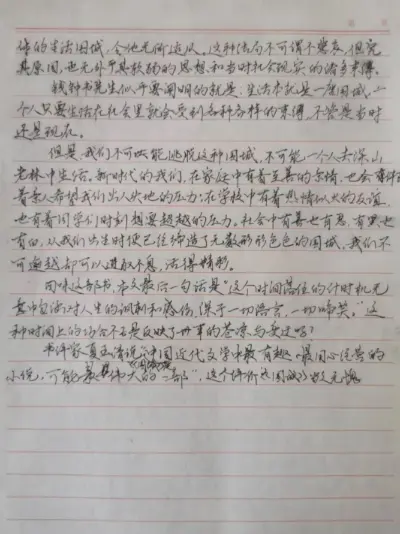 他的生活围城,令他无所适从。这种结局不可谓不悲哀,但究
其原因,也无外乎其软弱的思想和当时社会现实的诸多束缚。
钱钟书先生似乎要阐明的就是:生活本就是一座围城,一
个人只要生活在社会里就会受到各种各样的束缚,不管是当时
还是现在。
但是,我们不可以能逃脱这种围城,不可能一个人去深山
老林中生活。新时代的我们,在家庭中有着至善的亲情,也会
着亲人希望我们出人头地的压力;在学校中有着热情似火的友谊,
也有着同学们时刻想要超越的压力。社会中有善也有恶,有黑也
有白,从我们出生时便已经缔造了无数形形色色的围城,我们不
可逾越却可以进取不息,活得精彩。
回味这部书,本文最后一句话是"这个时间落伍的计时机无
意中包涵对人生的讽刺和感伤,深于一切语言,一切啼笑。"这
种时间上的巧合不正是反映了世事的苍凉与变迁吗?
书评家夏志清说:"中国近代文学中最有趣、最用心经营的
小说,可能最伟大的一部",这个评价《围城》